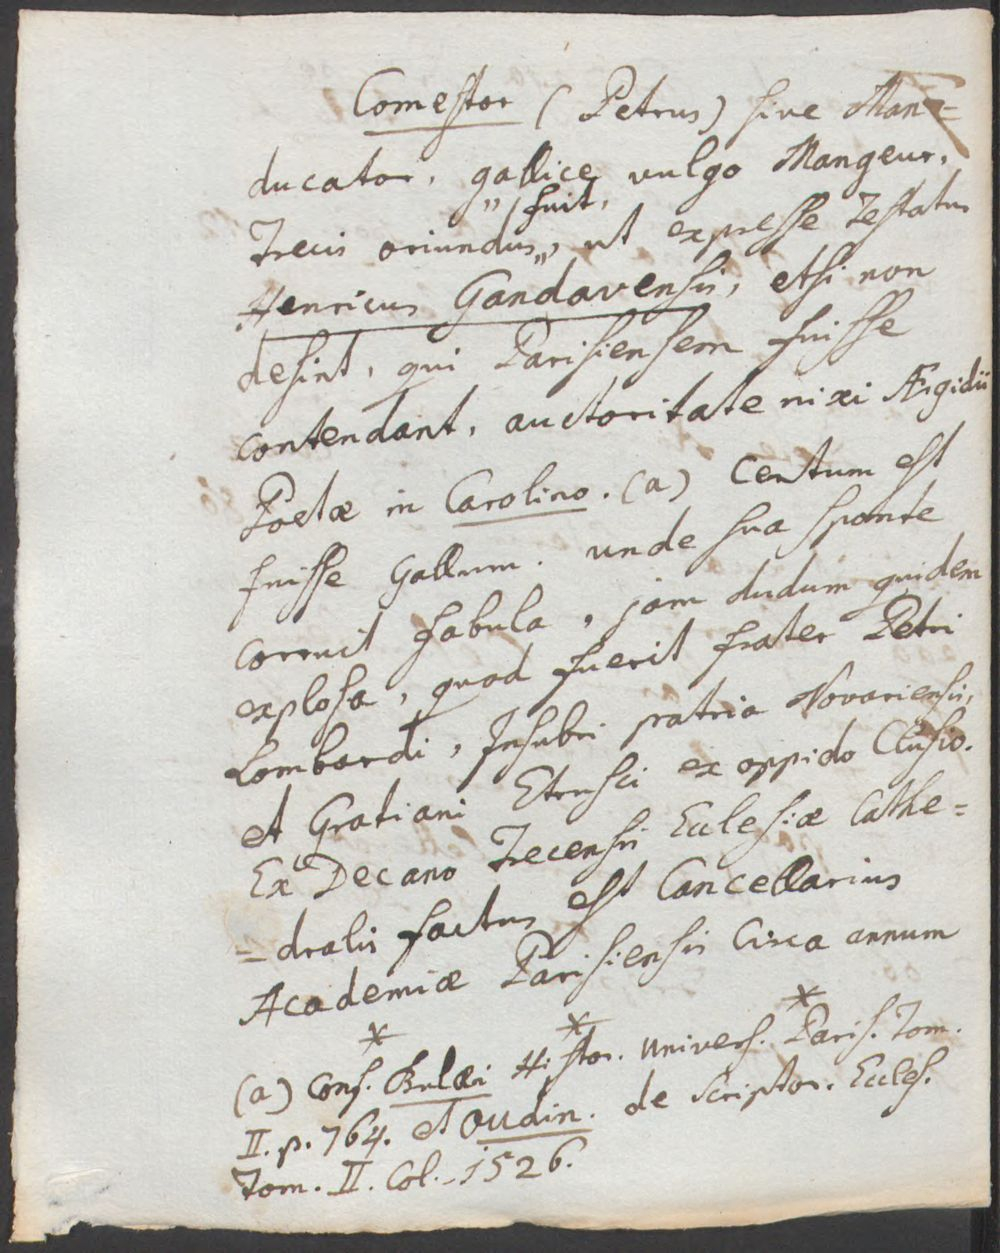 Comestor (Petrus) sive Man=
ducator, gallice vulgo Mangeur,
„ fuit,
Trecis oriundus„, ut expresse Testatus
Henricus Gandavensis, etsi non
desint, qui Parisiensem fuisse
contendant, auctoritate nixi Ægidii
Poetæ in Carolino. (a) Certum est
fuisse Gallum. unde sua sponte
corruit fabula, jam dudum quidem
explosa, quod fuerit frater Petri
Lombardi, Insubri patria Novariensis,
et Gratiani Etrusci ex oppido Clusio.
Ex Decano Trecensis Ecclesiæ Cathe=
=dralis factus est Cancellarius
Academiæ Parisiensis Circa annum
(a) Cons. Bulæi Histor. Univers. Paris. Tom.
II. p. 764. et Oudin. de Scriptor. Eccles.
Tom. II. Col. 1526.